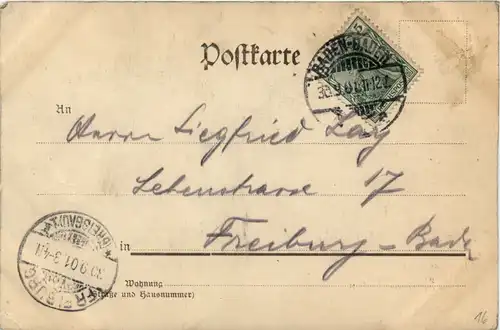 Postkarte
BADEN-BADEN
30.9.01.11-12V.
An
Herrn Siegfried Levy
Lebenstrasse 17
in Freiburg-Baden
FREIBURG
(BREISGAU)
30.9.01.3-4N.
Wohnung
(Straße und Hausnummer)
16